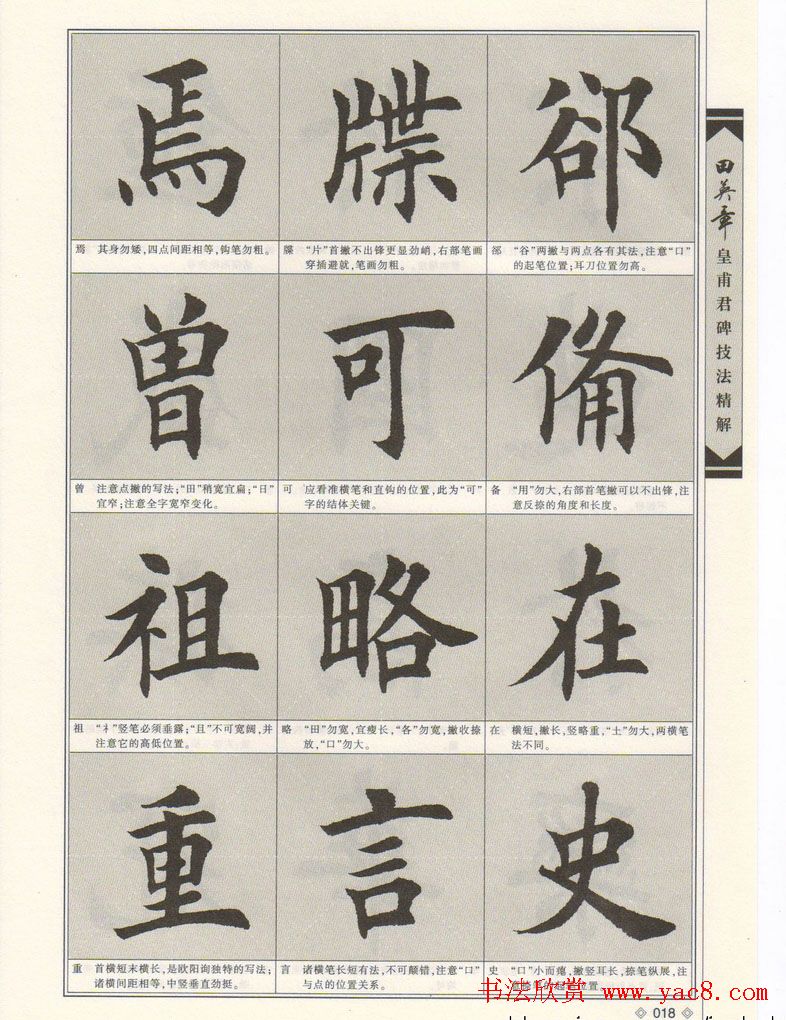 焉
牒
郤
焉 其身勿矮，四点间距相等，钩笔勿粗。
牒 “片”首撇不出锋更显劲峭，右部笔画
穿插避就，笔画勿粗。
郤 “谷”两撇与两点各有其法，注意“口”
的起笔位置；耳刀位置勿高。
曾
可
备
曾 注意点撇的写法；“田”稍宽宜扁；“日”
宜窄；注意全字宽窄变化。
可 应看准横笔和直钩的位置，此为“可”
字的结体关键。
备 “用”勿大，右部首笔撇可以不出锋，注
意反捺的角度和长度。
祖
略
在
祖 “礻”竖笔必须垂露；“且”不可宽阔，并
注意它的高低位置。
略 “田”勿宽，宜瘦长，“各”勿宽，撇收捺
放，“口”勿大。
在 横短，撇长，竖略重，“土”勿大，两横笔
法不同。
重
言
史
重 首横短末横长，是欧阳询独特的写法；
诸横间距相等，中竖垂直劲挺。
言 诸横笔长短有法，不可颠错，注意“口”
与点的位置关系。
史 “口”小而
，撇竖耳长，捺笔纵展，注
意捺笔的起笔位置。
田英章
皇甫君碑技法精解
书法欣赏 www.yac8.com
018